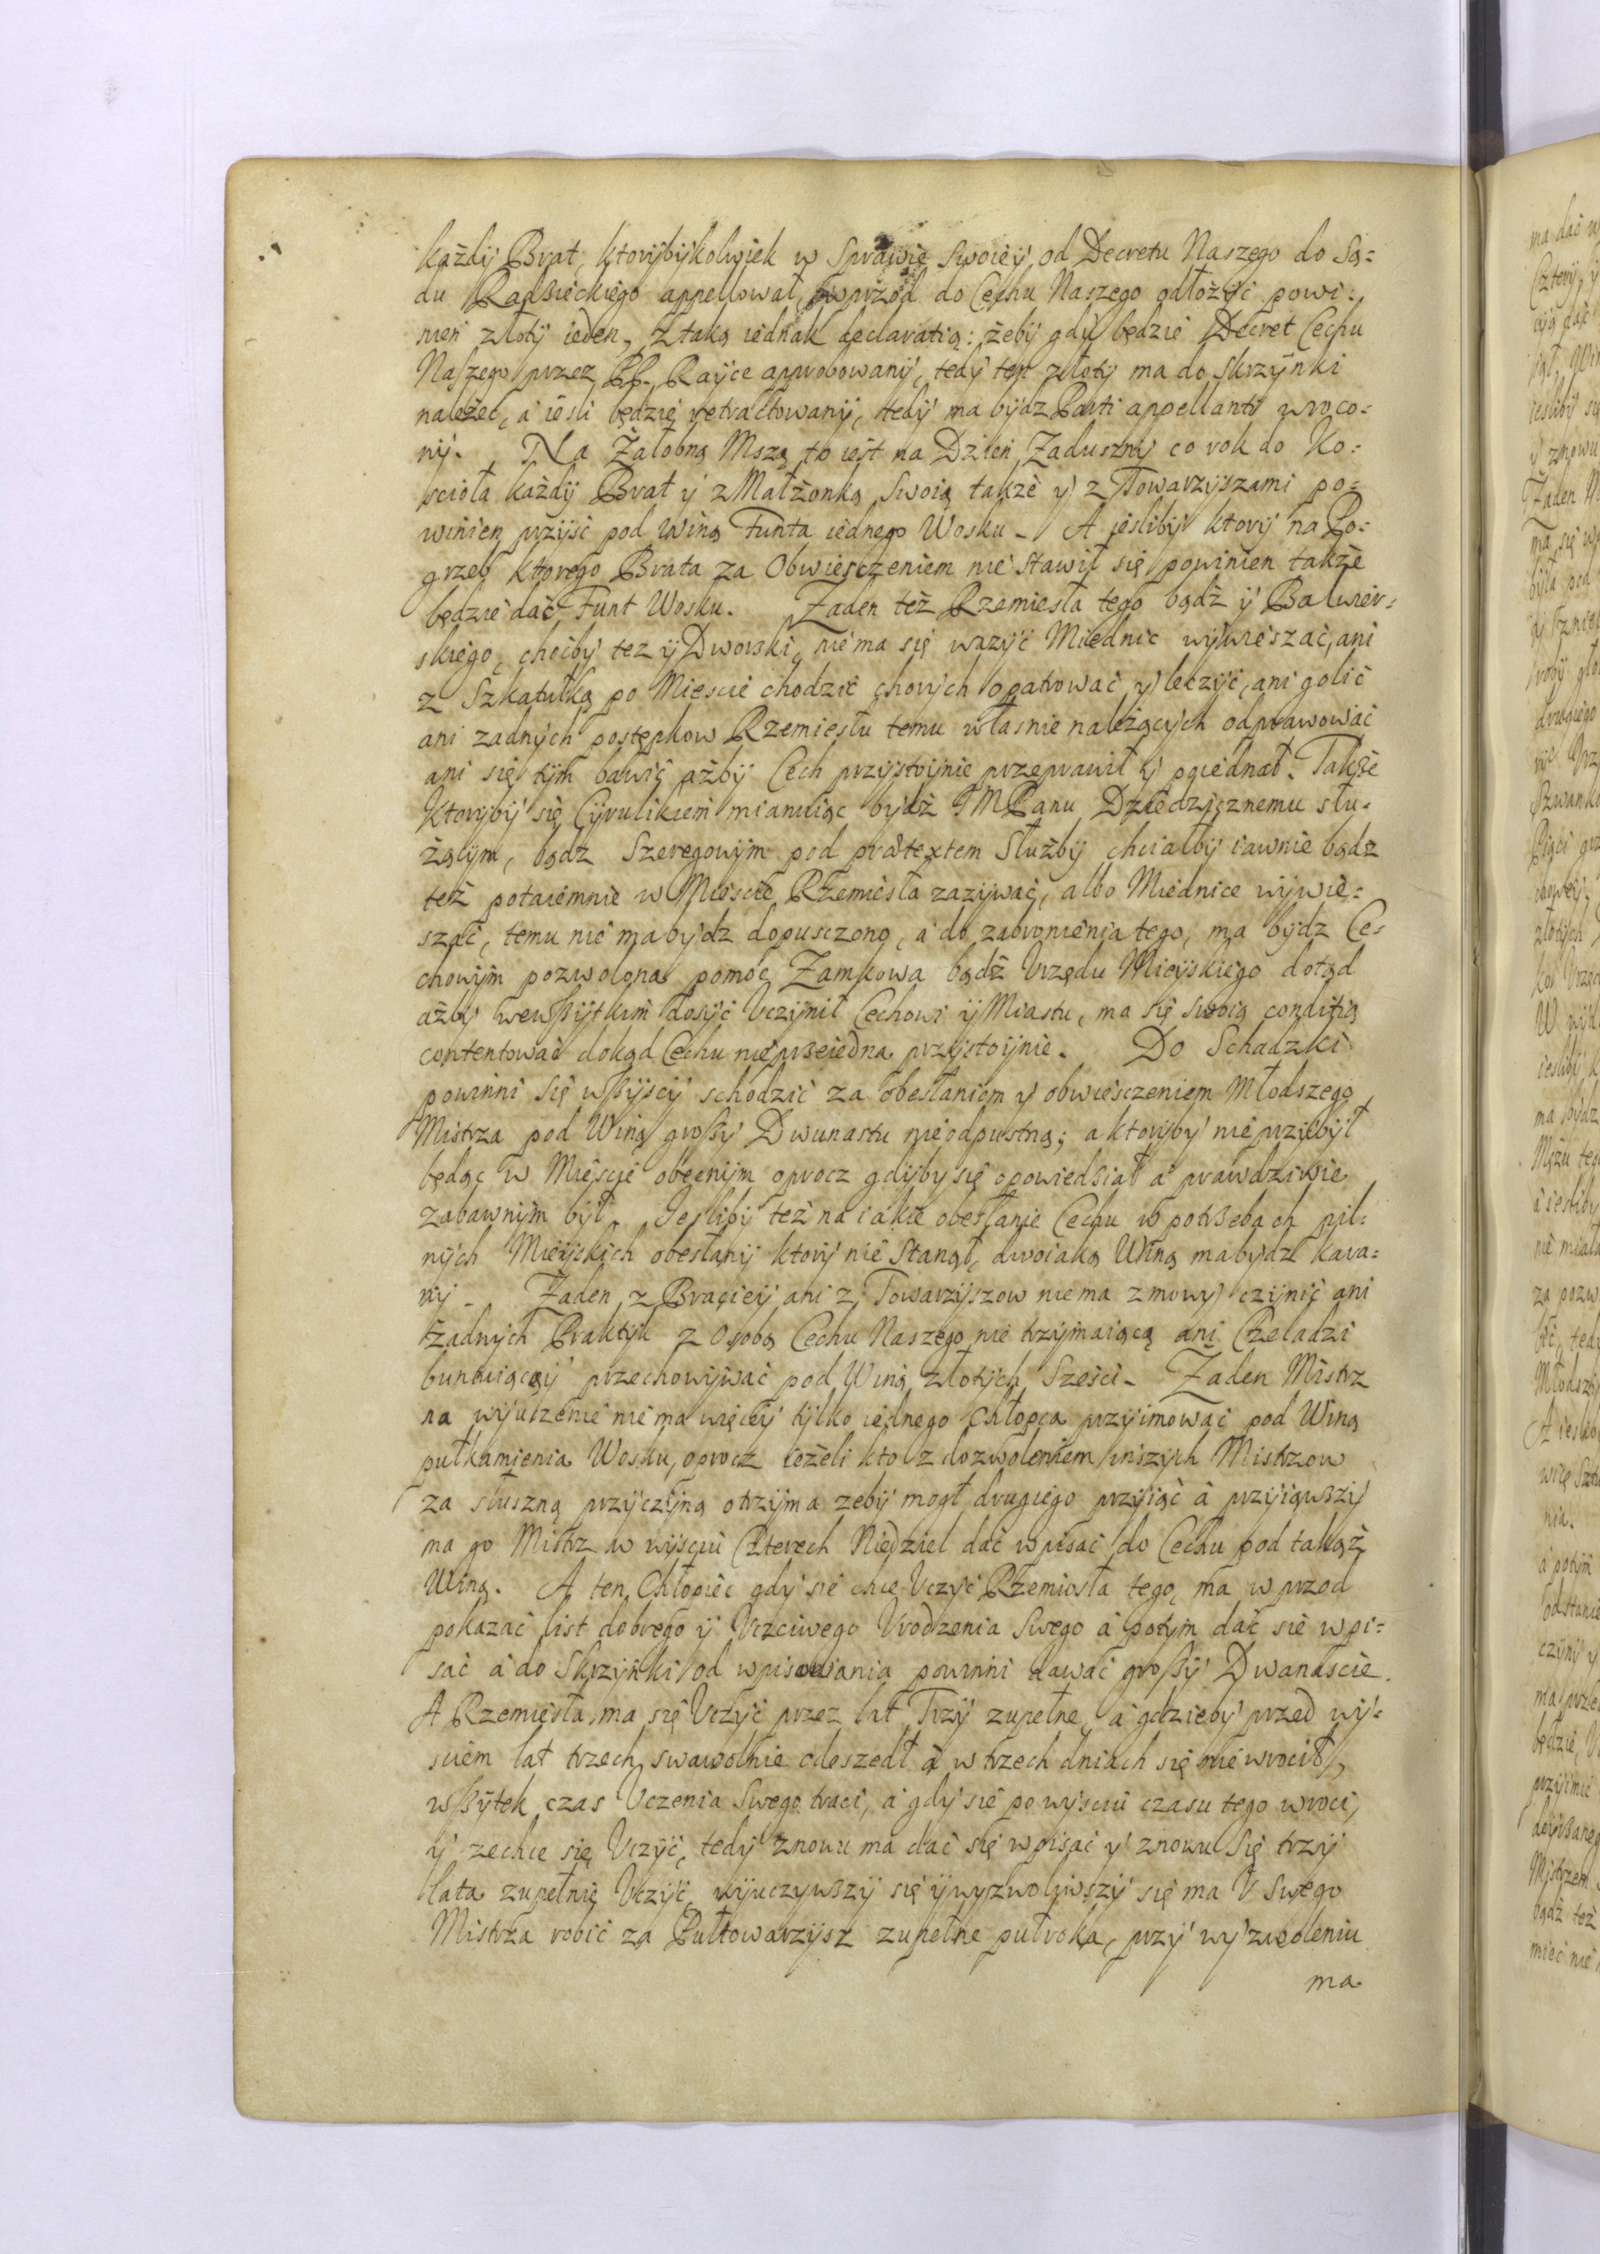 każdy Brat, ktorybykolwiek w Sprawie Swoiey, od Decretu Naszego do Są-
du Radzieckiego appellował, wprzod do Cechu Naszego odłożyć powi-
nien złoty ieden, z taką iednak declaratią: żeby gdy będzie Decret Cechu
Naszego przez PP. Rayce approbowany, tedy ten złoty ma do Skrzynki
należeć, a iesli będzie retractowany, tedy ma bydz Parti appellanti wroco-
ny. Na Żałobną Mszą to iest na Dzień Zaduszny co rok do Ko-
scioła każdy Brat y z Małżonką Swoią także y z Towarzyszami po-
winien przyść pod winą Funta iednego Wosku. A iesliby ktory na Po-
grzeb ktorego Brata za Obwiesczeniem nie Stawił się powinien także
będzie dać Funt Wosku. Żaden też Rzemiesła tego bądź y Balwier-
skiego, choćby tez y Dworski, nie ma się ważyć Miednic wywieszać, ani
z Szkatułką po Miescie chodzić chorych opatrować y leczyć, ani golić
ani zadnych postępkow Rzemiesłu temu własnie należących odprawować
ani się tym bawić ażby Cech przystoynie przeprawił y poiednał. Także
Ktoryby się Cyrulikiem mianuiąc bydź JMPanu Dziedzicznemu słu-
żąłym, bądz Szeregowym pod prætextem Służby chciałby iawnie bądz
też potaiemnie w Miescie Rzemiesła zazywać, albo Miednice wywie-
szać, temu nie ma bydz dopusczono, a do zabronienia tego, ma bydz Ce-
chowym pozwolona pomoc Zamkowa bądź Urzędu Mieyskiego dotąd
ażby wewszytkim dosyć Uczynił Cechowi y Miastu, ma się swoią conditią
contentować dokąd Cechu nieprzeiedna przystoynie. Do Schadzki
powinni się wszyscy schodzić za obesłaniem y obwiesczeniem Młodszego
Mistrza pod Winą groszy Dwunastu nieodpustną; a ktoryby nie przybył
będąc w Miescie obecnym oprocz gdyby się opowiedział a prawdziwie
zabawnym był. Jesliby też na iakie obesłanie Cechu w potrzebach pil-
nych Mieyskich obesłany ktory nie Stanął, dwoiaką Winą ma bydz kara-
ny. Żaden z Braciey ani z Towarzyszow nie ma zmowy czynić ani
żadnych Praktyk z Osobą Cechu Naszego nie trzymaiącą ani Czeladzi
buntuiącey przechowywać pod Winą złotych Sześci. Żaden Mistrz
na wyuczenie nie ma więcey tylko iednego Chłopca przyimować pod Winą
pułkamienia Wosku, oprocz ieżeli kto z dozwoleniem inszych Mistrzow
za słuszną przyczyną otrzyma zeby mogł drugiego przyiąć a przyiąwszy
ma go Mistrz w wysciu Czterech Niedziel dać wpisać do Cechu pod takąż
Winą. A ten Chłopiec gdy sie chce Uczyć Rzemiosła tego, ma wprzod
pokazać list dobrego y Uczciwego Urodzenia Swego a potym dać sie wpi-
sać a do Skrzynki od wpisowania powinni dawać groszy Dwanascie.
A Rzemiesła ma się Uczyć przez lat Trzy zupełne, a gdzieby przed wy-
sciem lat trzech swawolnie odeszedł a w trzech dniach się nie wrocił,
wszytek czas Uczenia Swego traci, a gdy sie po wysciu czasu tego wroci,
y zechce się Uczyć, tedy znowu ma dać się wpisać y znowu Się trzy
lata zupełnie Uczyć, wyuczywszy się y wyzwoliwszy się ma U Swego
Mistrza robić za Pułtowarzysz zupełne pułroka, przy wyzwoleniu
ma